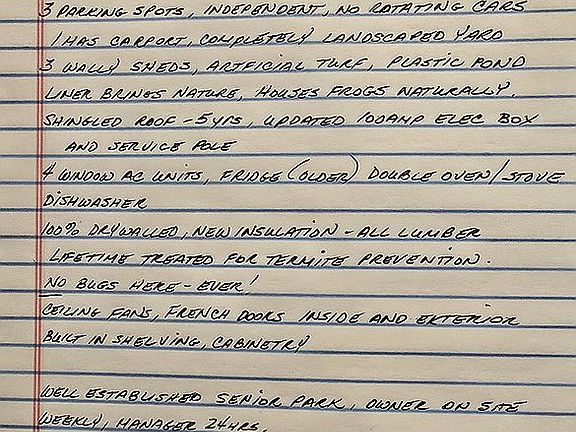 3 PARKING SPOTS, INDEPENDENT, NO ROTATING CARS
1 HAS CARPORT, COMPLETELY LANDSCAPED YARD
3 WALLY SHEDS, ARTIFICIAL TURF, PLASTIC POND
LINER BRINGS NATURE, HOUSES FROGS NATURALLY.
SHINGLED ROOF - 5 YRS, UPDATED 100AMP ELEC BOX
AND SERVICE POLE
4 WINDOW AC UNITS, FRIDGE (OLDER) DOUBLE OVEN/STOVE
DISHWASHER
100% DRYWALLED, NEW INSULATION - ALL LUMBER
LIFETIME TREATED FOR TERMITE PREVENTION.
NO BUGS HERE - EVER!
CEILING FANS, FRENCH DOORS INSIDE AND EXTERIOR
BUILT IN SHELVING, CABINETRY
WELL ESTABLISHED SENIOR PARK, OWNER ON SITE
WEEKLY, MANAGER 24HRS.